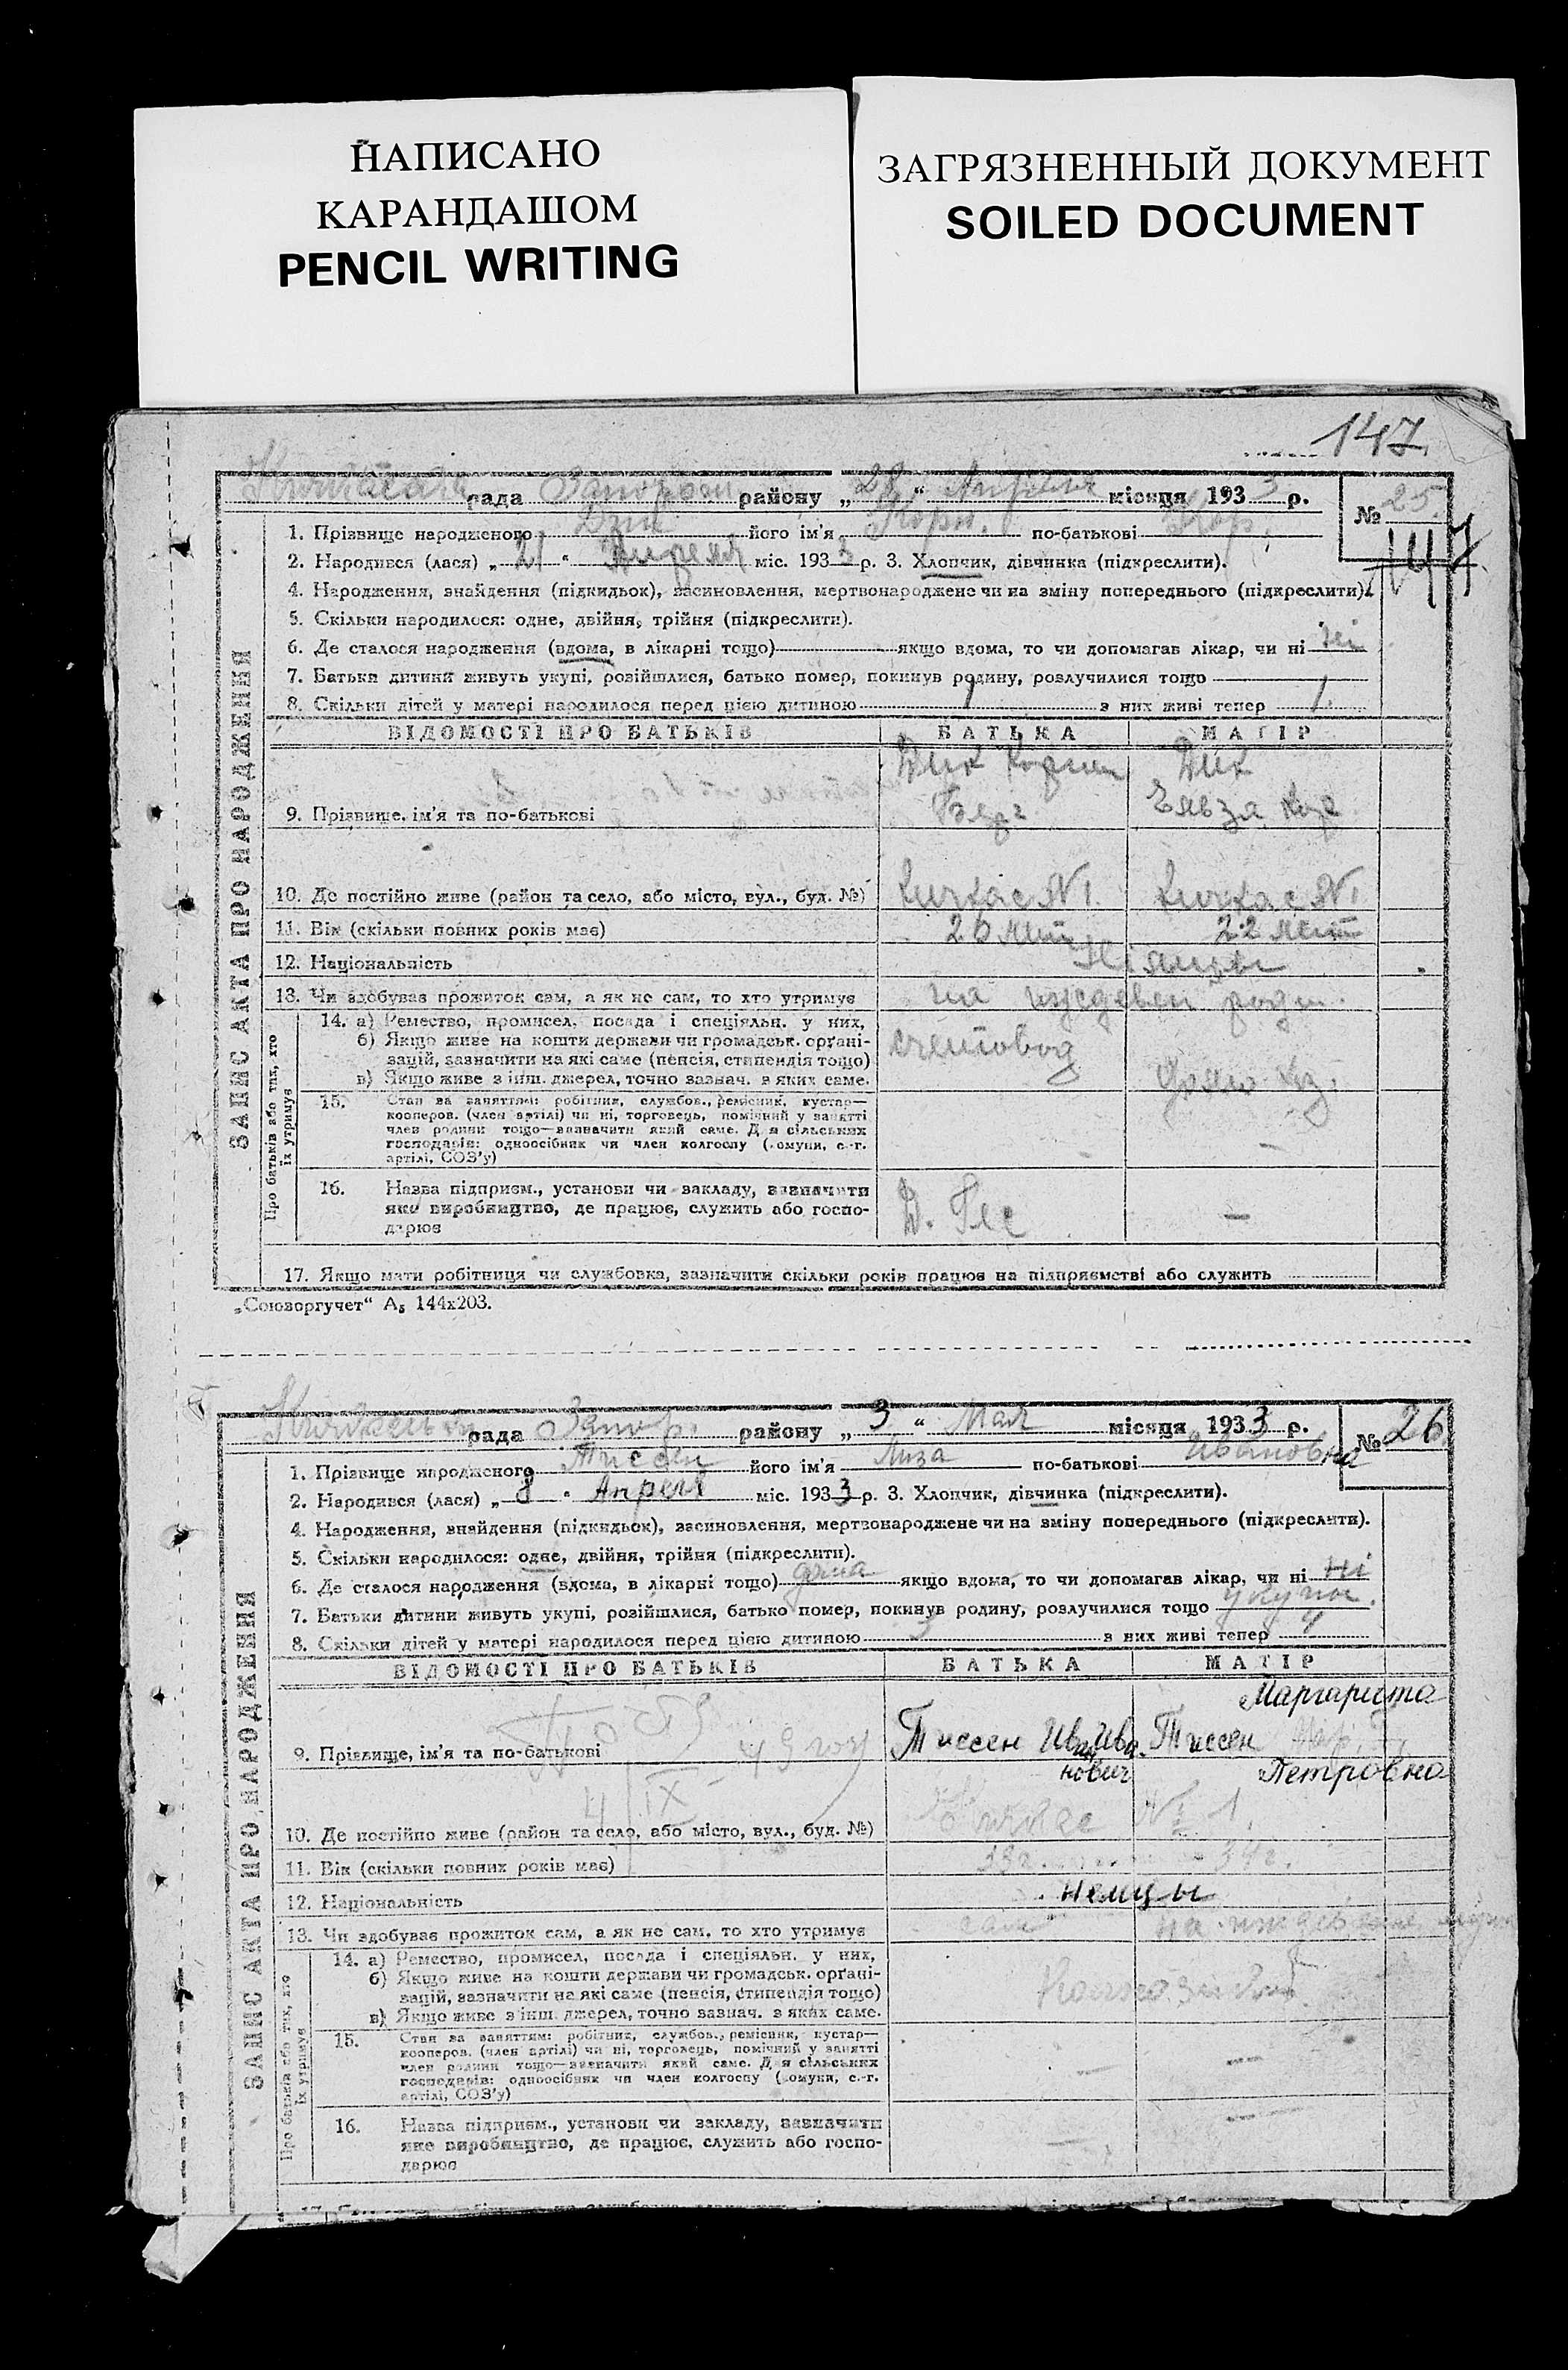 НАПИСАНО
КАРАНДАШОМ
PENCIL WRITING
ЗАГРЯЗНЕННЫЙ ДОКУМЕНТ
SOILED DOCUMENT
147
рада Запорож району „28“ Апреля місяця 1933 р.
№ 25.
147
1. Прізвище народженого Дик його ім'я Корн. по-батькові Кор.
2. Народився (лася) „21“ Апреля міс. 1933 р. 3. Хлопчик, дівчинка (підкреслити).
4. Народження, знайдення (підкидьок), засиновлення, мертвонароджене чи на зміну попереднього (підкреслити).
5. Скільки народилося: одне, двійня, трійня (підкреслити).
6. Де сталося народження (вдома, в лікарні тощо) якщо вдома, то чи допомагав лікар, чи ні ні
7. Батьки дитини живуть укупі, розійшлися, батько помер, покинув родину, розлучилися тощо
8. Скільки дітей у матері народилося перед цією дитиною 1 з них живі тепер 1.
ВІДОМОСТІ ПРО БАТЬКІВ БАТЬКА МАТІР
ЗАПИС АКТА ПРО НАРОДЖЕННЯ
Дик Корнин Дик
9. Прізвище, ім'я та по-батькові
10. Де постійно живе (район та село, або місто, вул., буд. №) Кичкас №1. Кичкас №1
11. Вік (скільки повних років має) 26 лет 22 лет
12. Національність
13. Чи здобуває прожиток сам, а як не сам, то хто утримує на иждевен
Про батьків або тих, хто їх утримує
14. а) Ремество, промисел, посада і спеціяльн. у них,
б) Якщо живе на кошти держави чи громадськ. організацій, зазначити на які саме (пенсія, стипендія тощо) счетовод
в) Якщо живе з інш. джерел, точно зазнач. з яких саме.
15. Стан за заняттям: робітник, службов., ремісник, кустар—
кооперов. (член артілі) чи ні, торговець, помічний у занятті
член родини тощо—зазначити який саме. Для сільських
господарів: одноосібник чи член колгоспу (комуни, с.-г.
артілі, СОЗ'у) —
16. Назва підприєм., установи чи закладу, зазначити
яке виробництво, де працює, служить або госпо-
дарює Д. Гес —
17. Якщо мати робітниця чи службовка, зазначити скільки років працює на підприємстві або служить
„Союзоргучет“ А5 144х203.
рада Запор. району „3“ Мая місяця 1933 р.
№ 26
1. Прізвище народженого Тиссен його ім'я Лиза по-батькові Ивановна
2. Народився (лася) „8“ Апреля міс. 1933 р. 3. Хлопчик, дівчинка (підкреслити).
4. Народження, знайдення (підкидьок), засиновлення, мертвонароджене чи на зміну попереднього (підкреслити).
5. Скільки народилося: одне, двійня, трійня (підкреслити).
6. Де сталося народження (вдома, в лікарні тощо) дома якщо вдома, то чи допомагав лікар, чи ні ні
7. Батьки дитини живуть укупі, розійшлися, батько помер, покинув родину, розлучилися тощо укупи.
8. Скільки дітей у матері народилося перед цією дитиною 3 з них живі тепер 4
ВІДОМОСТІ ПРО БАТЬКІВ БАТЬКА МАТІР
ЗАПИС АКТА ПРО НАРОДЖЕННЯ
Маргарита
9. Прізвище, ім'я та по-батькові Тиссен Иван Ива- Тиссен
нович Петровна
10. Де постійно живе (район та село, або місто, вул., буд. №) Кичкас № 1
11. Вік (скільки повних років має) 38г. 34г.
12. Національність немцы
13. Чи здобуває прожиток сам, а як не сам, то хто утримує сам
Про батьків або тих, хто їх утримує
14. а) Ремество, промисел, посада і спеціяльн. у них,
б) Якщо живе на кошти держави чи громадськ. організацій, зазначити на які саме (пенсія, стипендія тощо)
в) Якщо живе з інш. джерел, точно зазнач. з яких саме.
15. Стан за заняттям: робітник, службов., ремісник, кустар—
кооперов. (член артілі) чи ні, торговець, помічний у занятті
член родини тощо—зазначити який саме. Для сільських
господарів: одноосібник чи член колгоспу (комуни, с.-г.
артілі, СОЗ'у) — —
16. Назва підприєм., установи чи закладу, зазначити
яке виробництво, де працює, служить або госпо-
дарює — —